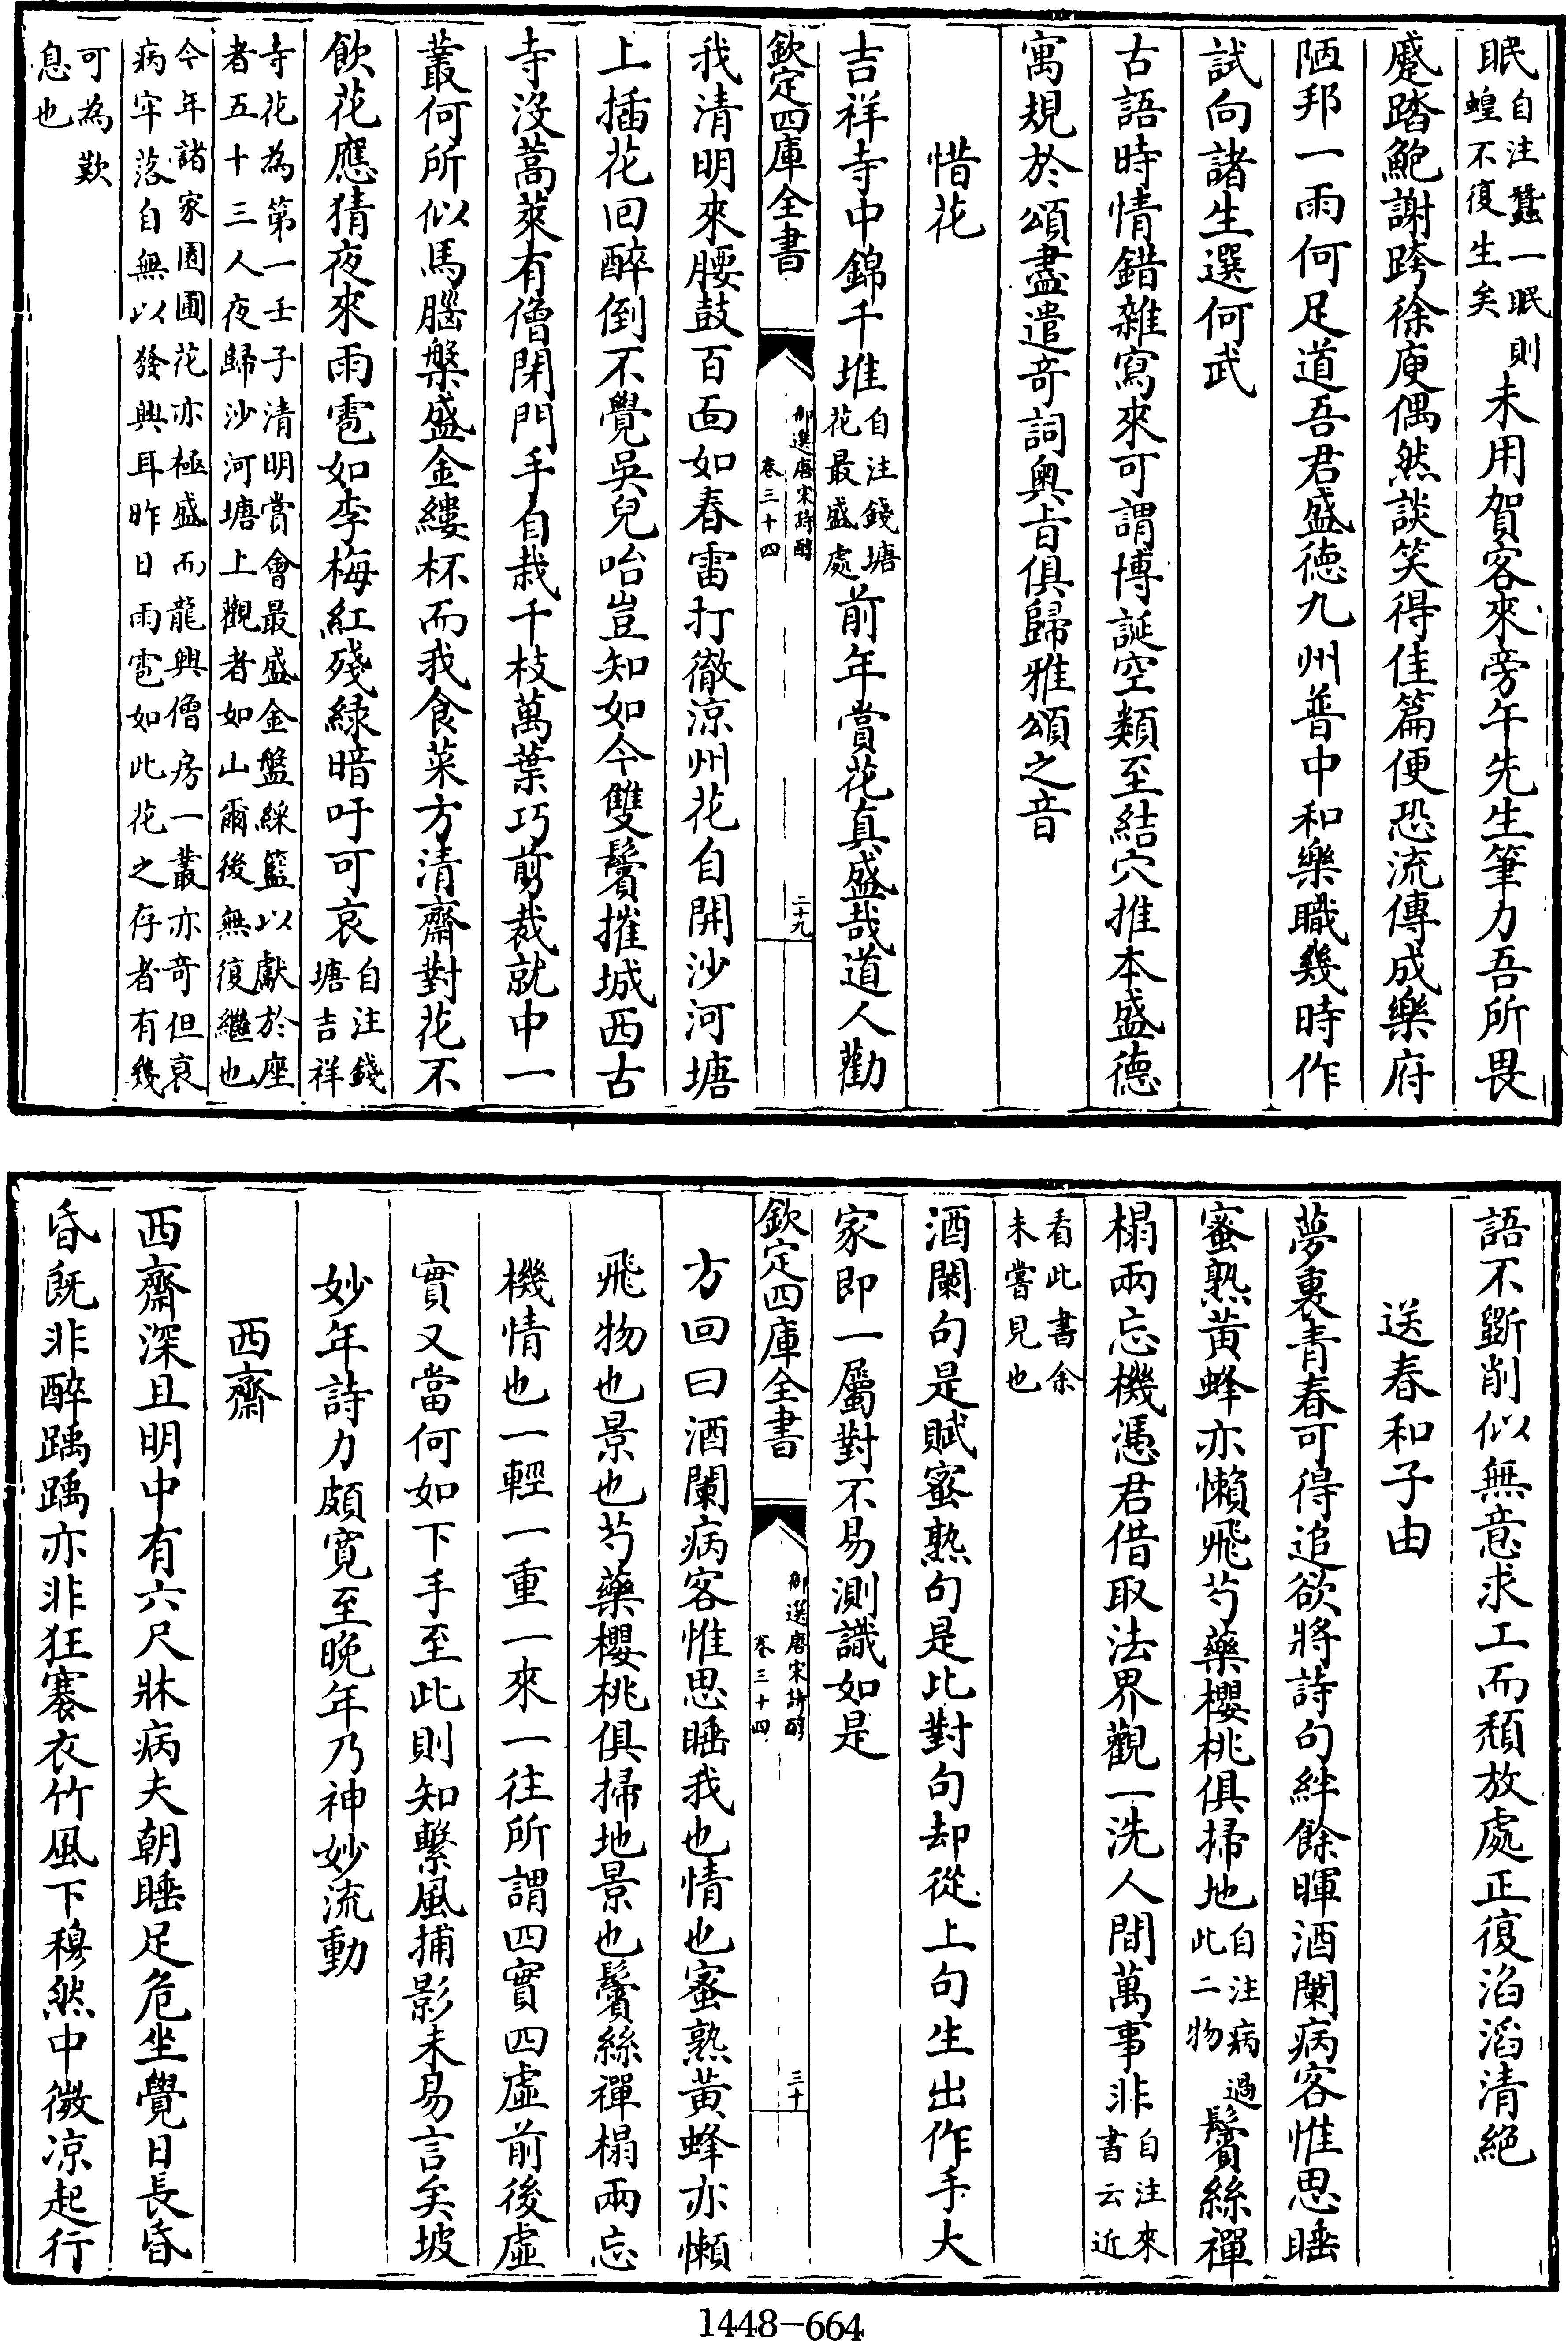 眠自注蠶一眠則
蝗不復生矣未用賀客來旁午先生筆力吾所畏
蹙踏鮑謝跨徐庾偶然談笑得佳篇便恐流傳成樂府
陋邦一雨何足道吾君盛徳九州普中和樂職幾時作
試向諸生選何武
古語時情錯雜寫來可謂博誕空類至結穴推本盛德
寓規於頌盡遣奇詞奥㫖俱歸雅頌之音
惜花
吉祥寺中錦千堆自注錢塘
花最盛處前年賞花真盛哉道人勸
欽定四庫全書
御選唐宋詩醇
卷三十四
二十九
我清明來腰鼓百面如春雷打徹涼州花自開沙河塘
上插花回醉倒不覺吳兒咍豈知如今雙鬢摧城西古
寺沒蒿萊有僧閉門手自栽千枝萬葉巧剪裁就中一
叢何所似馬腦槃盛金縷杯而我食菜方清齋對花不
飲花應猜夜來雨雹如李梅紅殘緑暗吁可哀自注錢
塘吉祥
寺花為第一壬子清明賞會最盛金盤綵籃以獻於座
者五十三人夜歸沙河塘上觀者如山爾後無復繼也
今年諸家園圃花亦極盛而龍興僧房一叢亦奇但衰
病牢落自無以發興耳昨日雨雹如此花之存者有幾
可為歎
息也
語不斲削似無意求工而頽放處正復滔滔清絶
送春和子由
夢裏青春可得追欲將詩句絆餘暉酒闌病客惟思睡
蜜熟黄蜂亦懶飛芍藥櫻桃俱掃地自注病過
此二物鬢絲禪
榻兩忘機憑君借取法界觀一洗人間萬事非自注來
書云近
看此書余
未嘗見也
酒闌句是賦蜜熟句是比對句却從上句生出作手大
家即一屬對不易測識如是
欽定四庫全書
御選唐宋詩醇
卷三十四
三十
方回曰酒闌病客惟思睡我也情也蜜熟黄蜂亦懶
飛物也景也芍藥櫻桃俱掃地景也鬢絲禪榻兩忘
機情也一輕一重一來一往所謂四實四虛前後虛
實又當何如下手至此則知繫風捕影未易言矣坡
妙年詩力頗寛至晚年乃神妙流動
西齋
西齋深且明中有六尺牀病夫朝睡足危坐覺日長昏
昏既非醉踽踽亦非狂褰衣竹風下穆然中微凉起行
1448-664